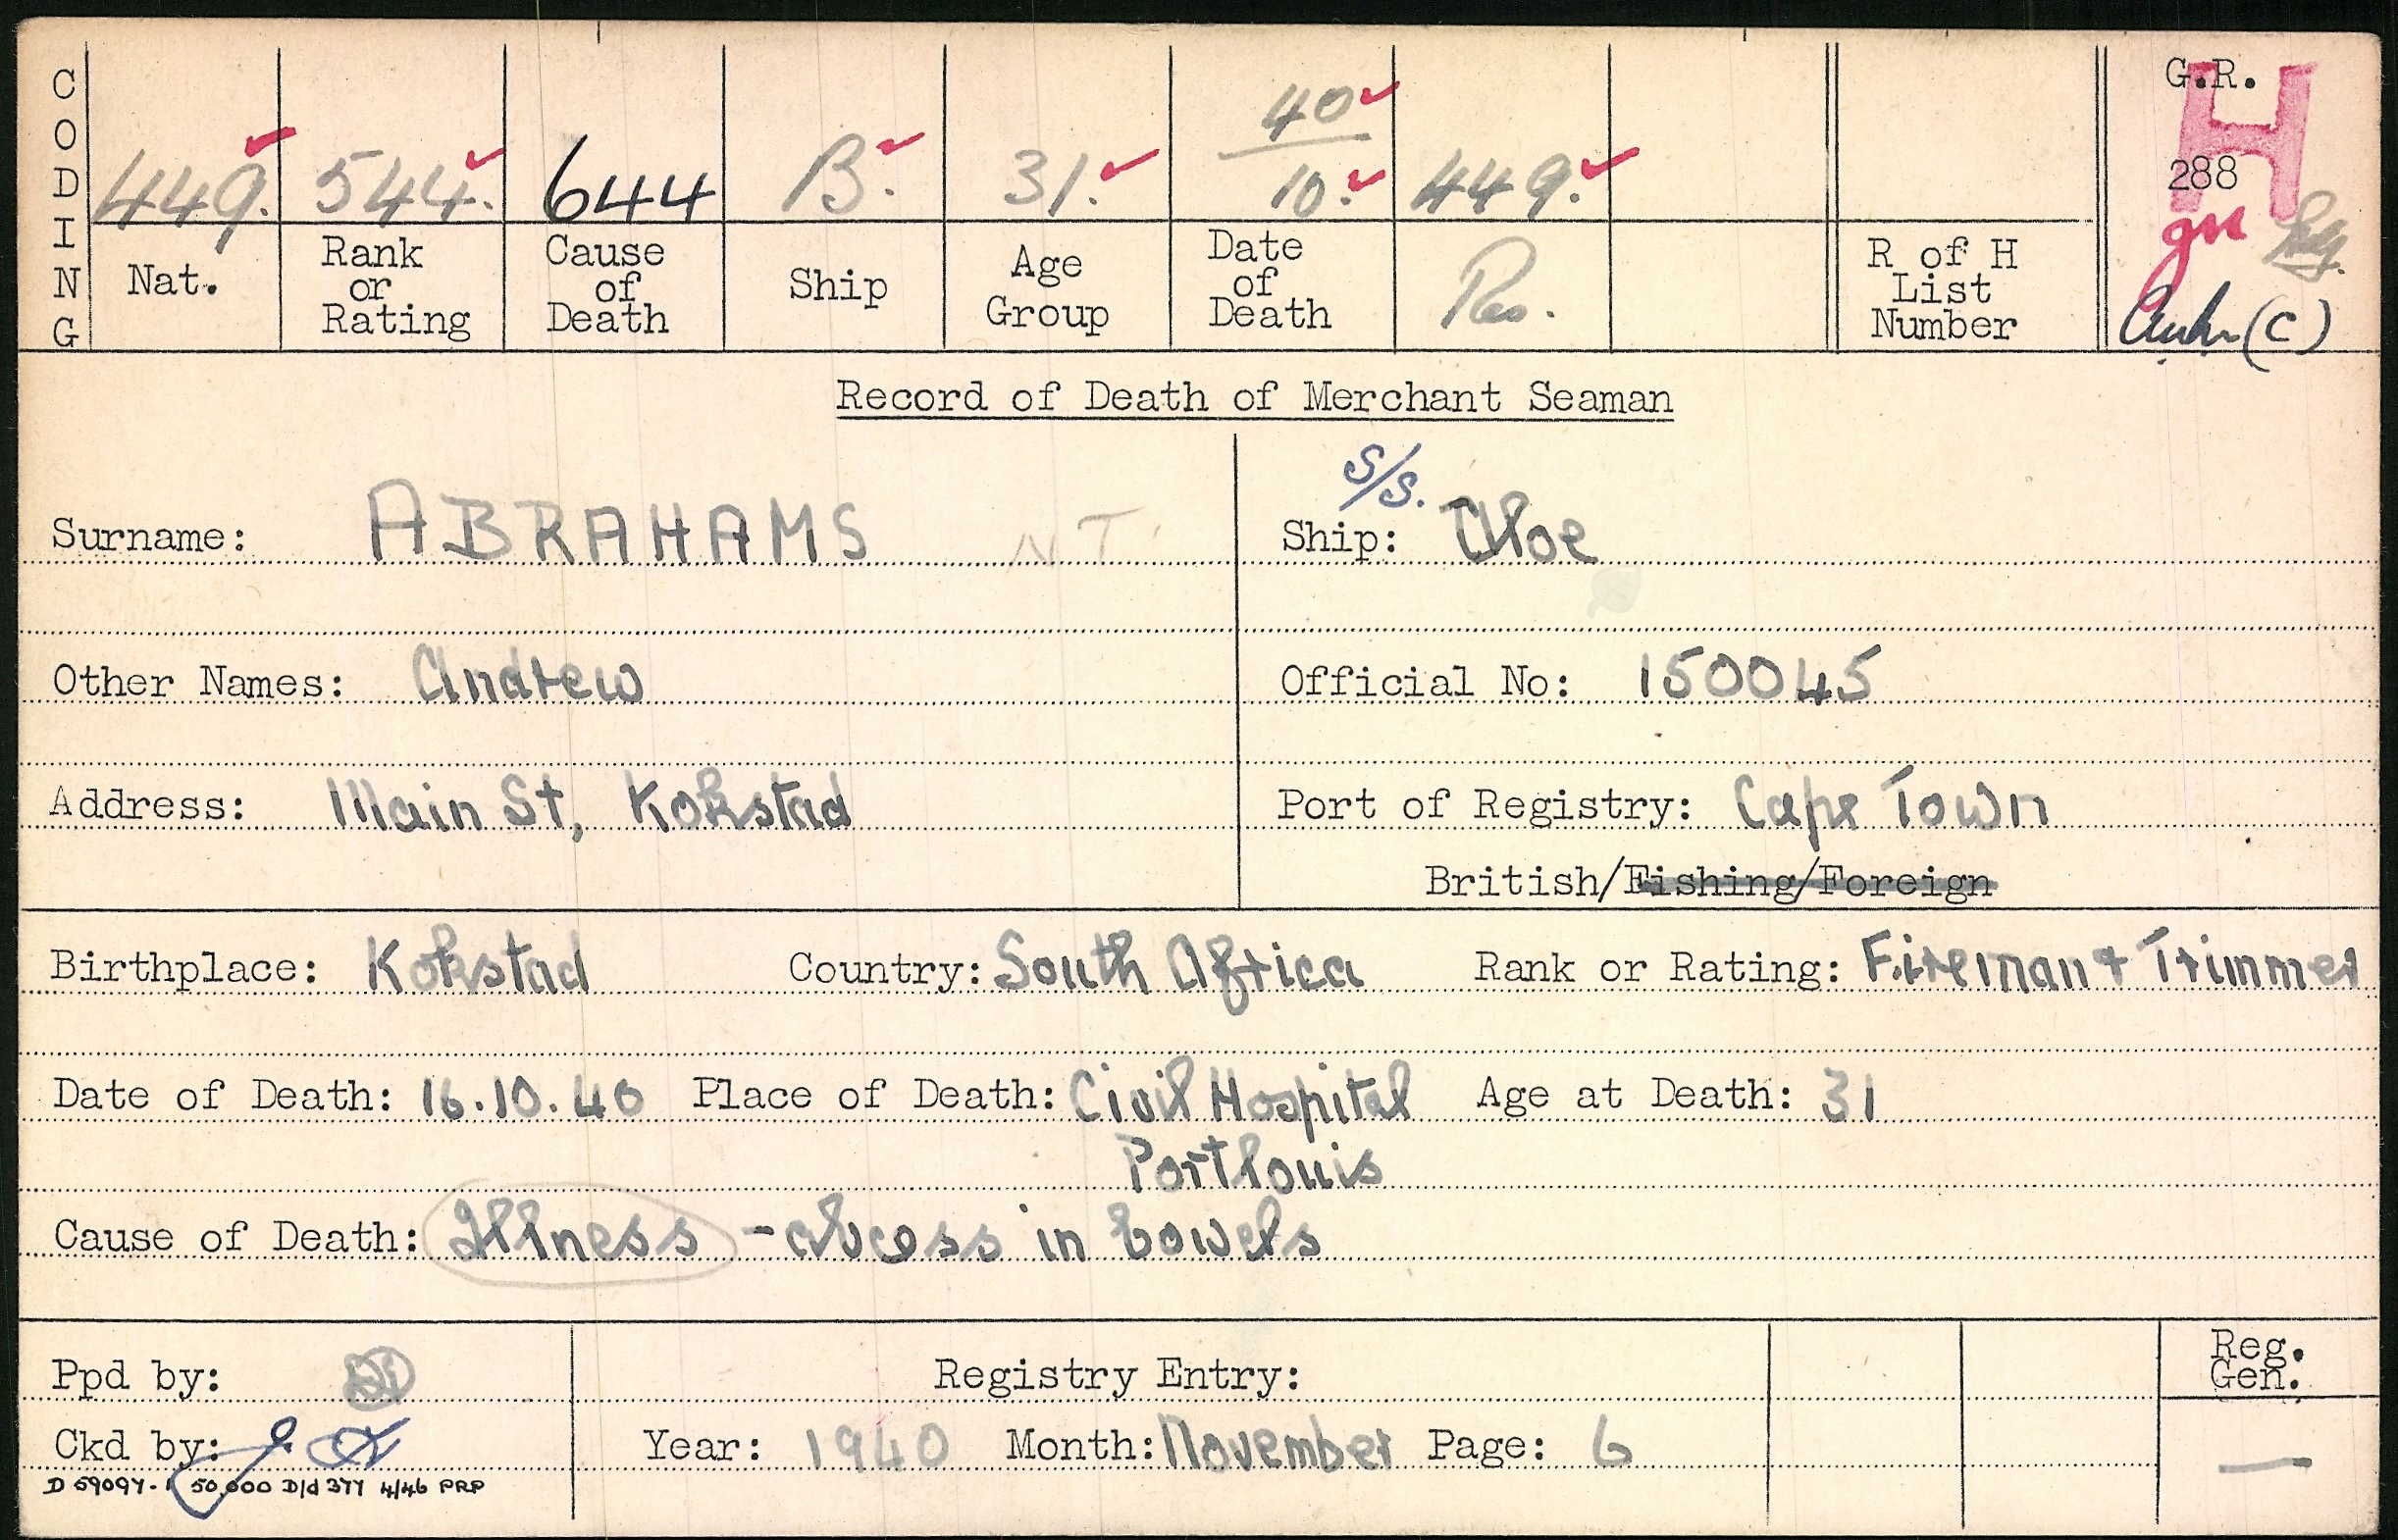 CODING
449. 544. 644 B. 31. 40/10. 449.
Nat. Rank or Rating Cause of Death Ship Age Group Date of Death Res. R of H List Number
G.R.
H
288
Record of Death of Merchant Seaman
Surname: ABRAHAMS NT
S/S.
Ship: Chloe
Other Names: Andrew
Official No: 150045
Address: Main St, Kokstad
Port of Registry: Cape Town
British/Fishing/Foreign
Birthplace: Kokstad Country: South Africa Rank or Rating: Fireman & Trimmer
Date of Death: 16.10.40 Place of Death: Civil Hospital Age at Death: 31
Port Louis
Cause of Death: Illness - abcess in bowels
Ppd by:
Registry Entry:
Reg. Gen.
Ckd by:
Year: 1940 Month: November Page: 6
D 59097-1 50,000 D/d 377 4/46 PRP